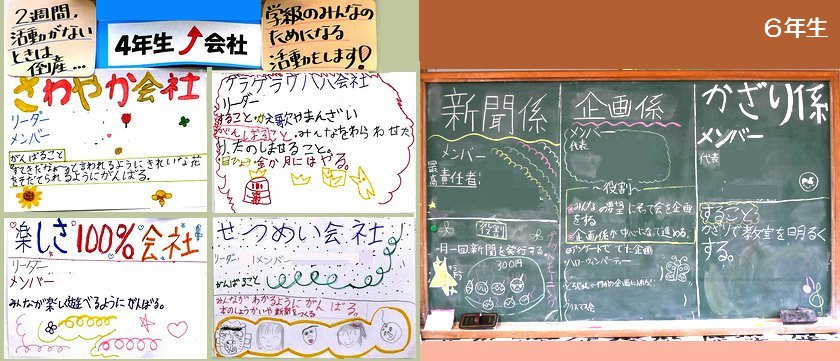 2週間、
活動がない
ときは
倒産…
4年生 会社
学級のみんなの
ためになる
活動をします!
さわやか会社
リーダー
メンバー
がんばること
をそだてられるようにがんばる。
ゲラゲラワハハ会社
リーダー
すること
やまんざい
がんばること
たのしませること。
楽しさ100%会社
リーダー
メンバー
みんなが楽しく遊べるようにがんばる。
せつめい会社
リーダー
メンバー
がんばること
みんながわかるようにがんばる。
本のしょうかいや新聞をつくる
6年生
新聞係
メンバー
最高責任者:
役割
月一回新聞を発行する。
300円
企画係
メンバー
代表
〜役割〜
みんなの要望にそって会を企画
をする。
企画係が中心になって進める。
アンケートで
企画
かざり係
メンバー
代表
すること
かざりで教室を明るく
する。